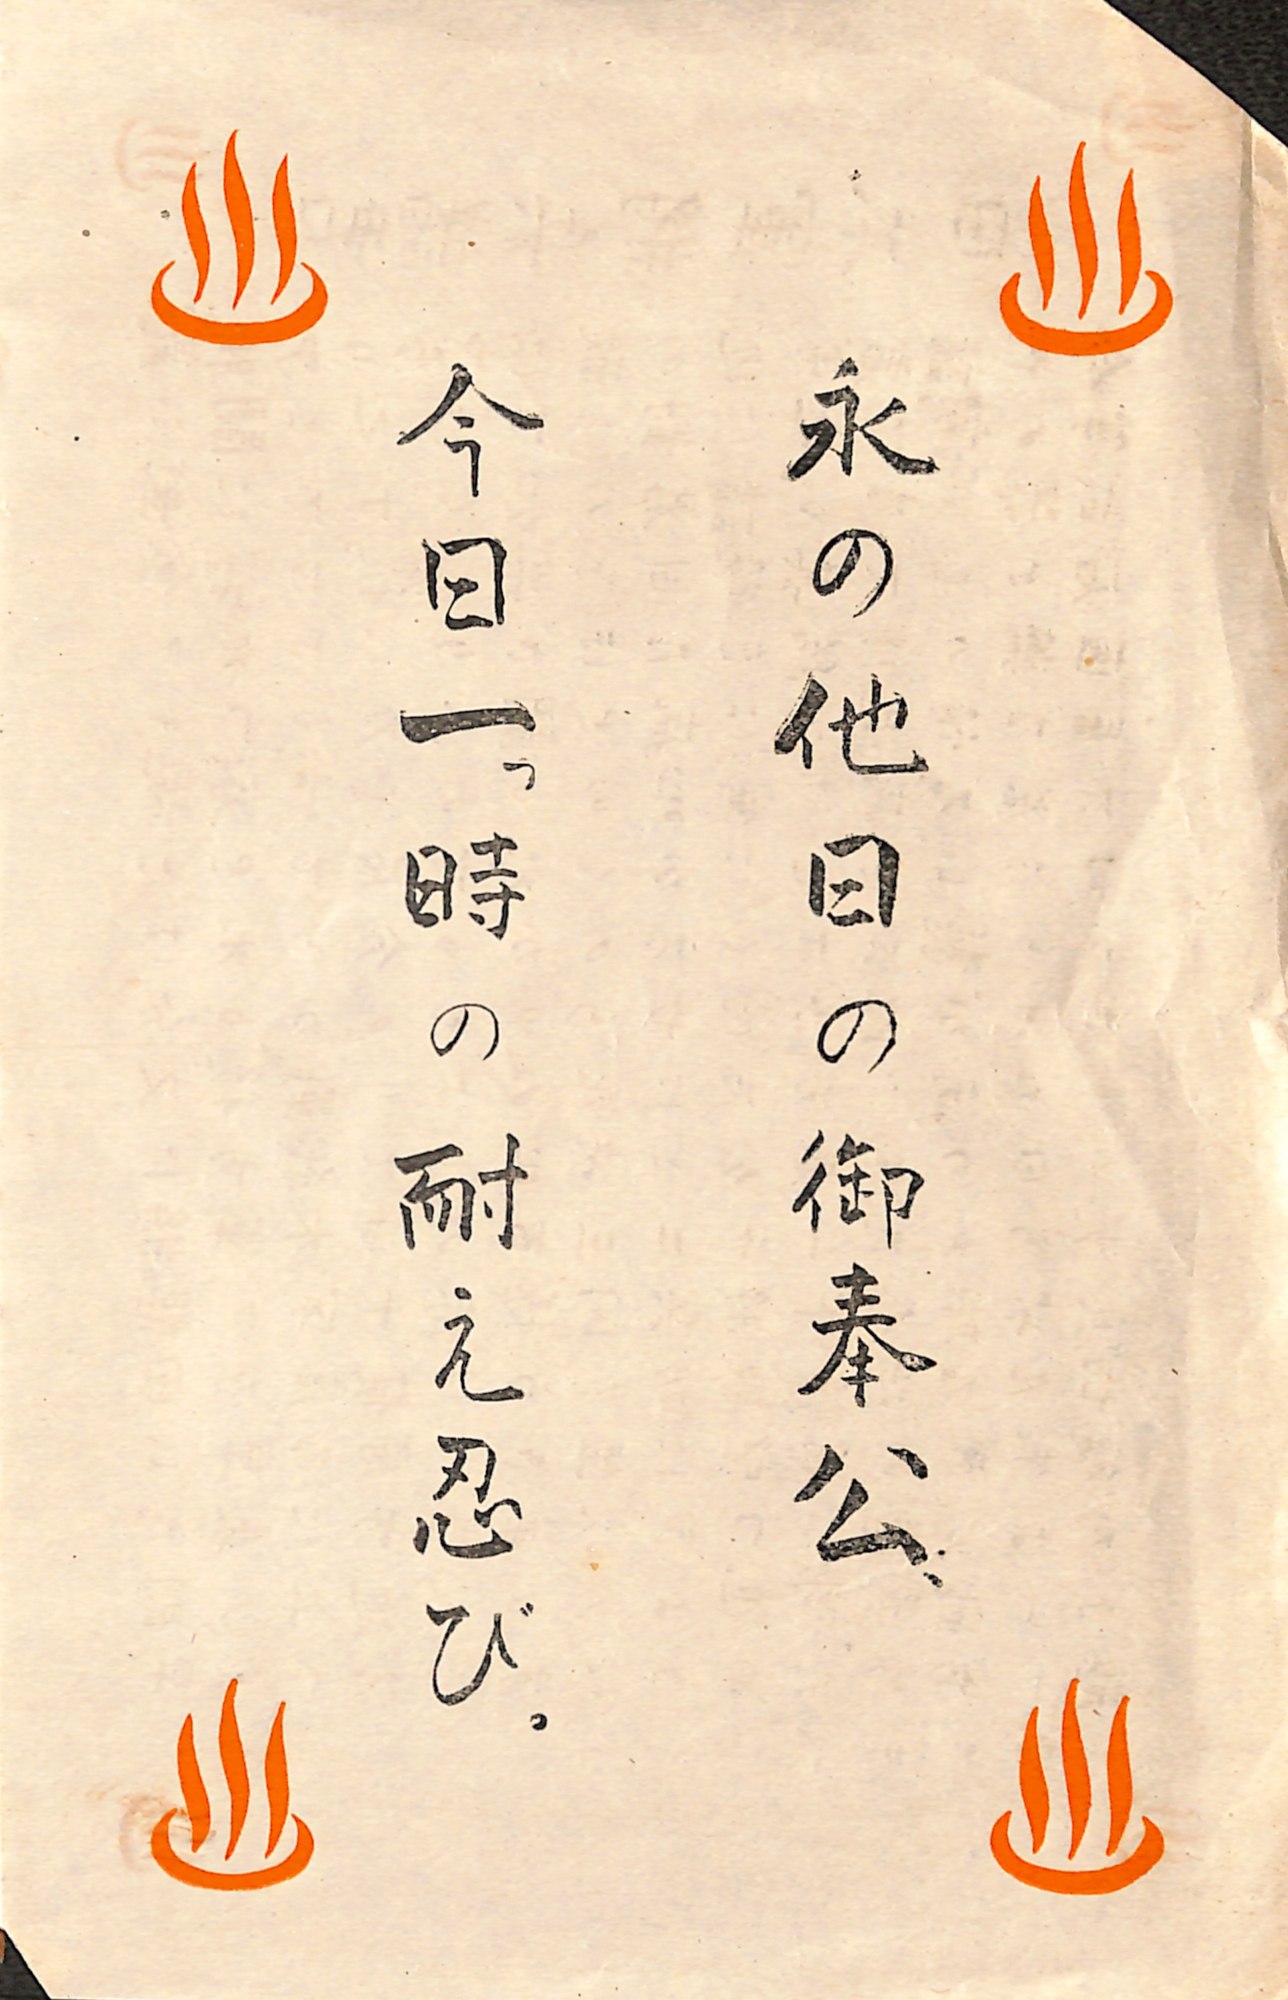 永の他日の御奉公、
今日一っ時の耐え忍び。